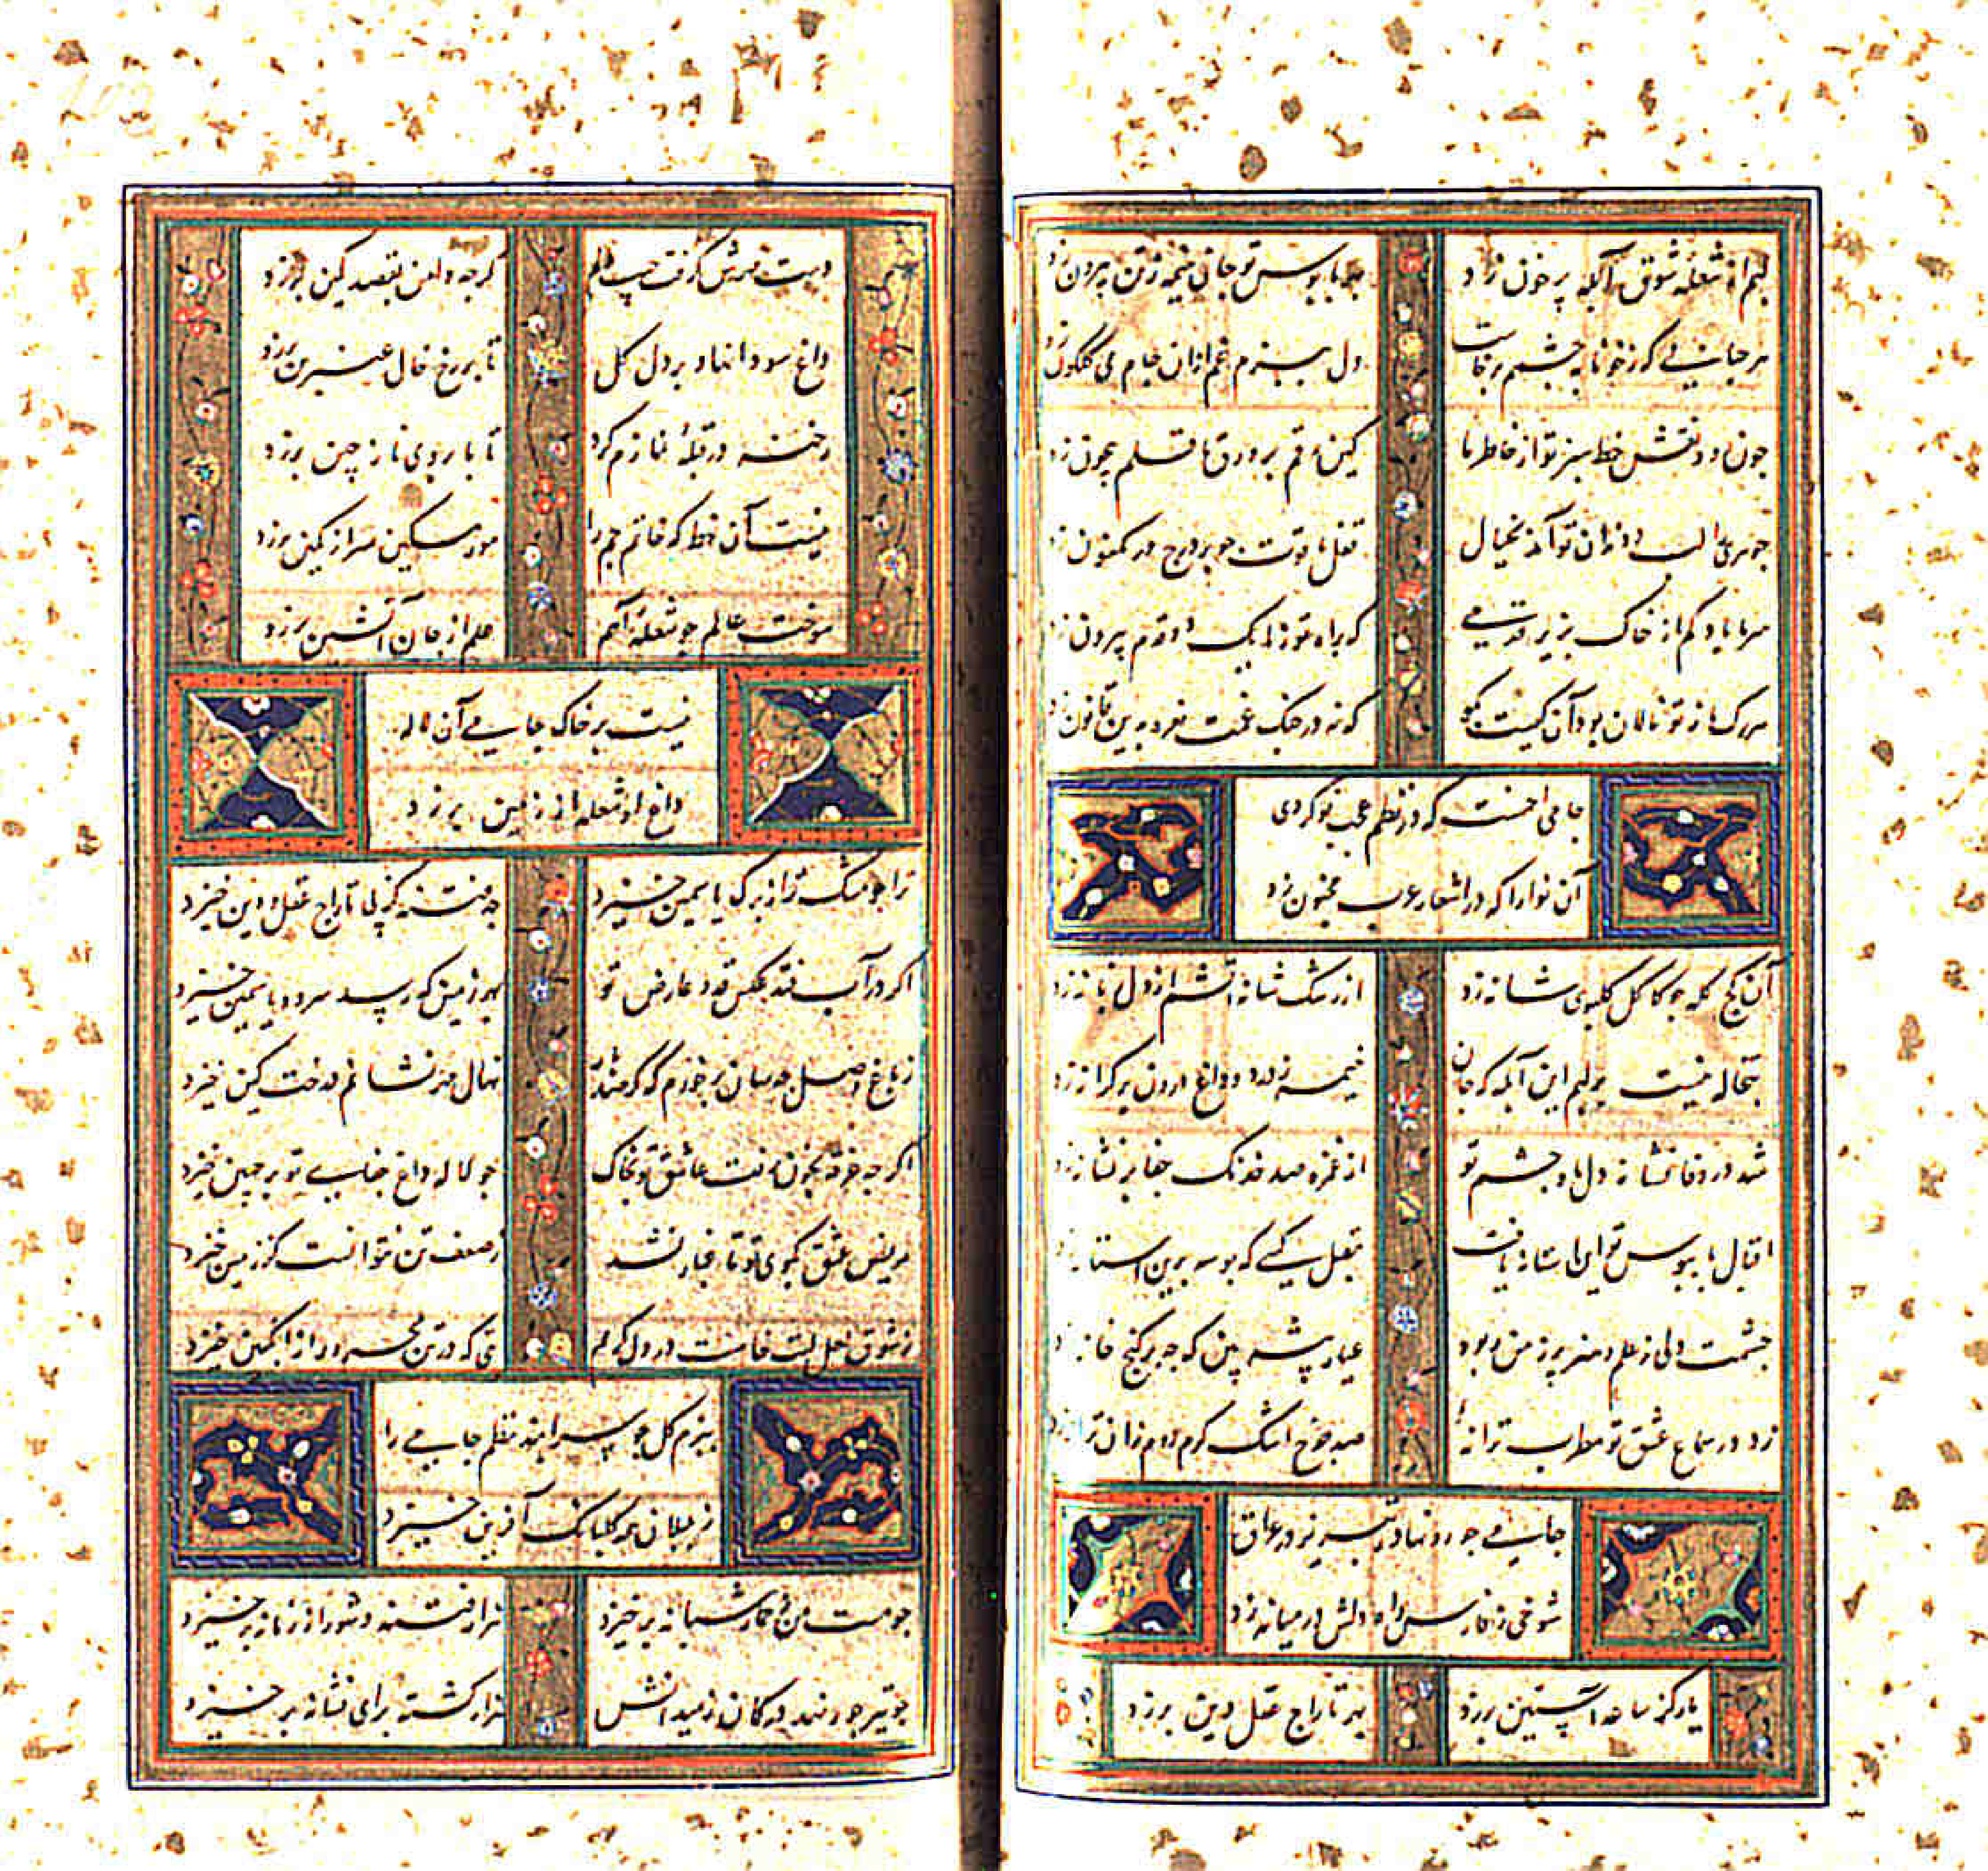 لبم از شعله شوق آبله پر خون زد
چو پابوس تو جان خیمه ز تن بیرون زد
هر حبابی که ز خونابه چشمم برخاست
دل ببزم غم از آن جام می گلگون زد
چون رود نقش خط سبز تو از خاطر ما
کین رقم بر ورق ما قلم بیچون زد
جوهری لب و دندان تو آمد بخیال
قفل یاقوت چو بر درج در مکنون زد
سر ما باد کم از خاک بزیر قدمی
که براه تو ز ما یک دو قدم بیرون زد
هر رگ ما ز تو نالان بود آن کیست بگو
که نه در چنگ غمت نعره بدین قانون زد
جامی احسنت که در نظم عجب نو کردی
آن نوا را که در اشعار عرب مجنون زد
آن کج کله چو کاکل گلبوی شانه زد
از رشک شانه آتشم از دل زبانه زد
تبخاله نیست بر لبم این آبله که جان
خیمه ز درد و داغ درون بر کرانه زد
شد در وفا نشانه دل ما و چشم تو
از غمزه صد خدنگ جفا بر نشانه زد
اقبال پابوس تو این آستانه یافت
مقبل کسی که بوسه برین آستانه زد
چشمت دلی ز علم و هنر پر ز من ربود
عیار پیشه بین که چه بر گنج خانه زد
زد در سماع عشق تو مطرب ترانه
صد چرخ اشک گرم روم زان ترانه زد
جامی چو رو نهاد ز تبریز در عراق
شوخی ز فارس راه دلش در میانه زد
یار کز ساعد آستین برزد
بهر تاراج عقل و دین برزد
دست مهرش گرفت جیب دلم
گرچه دامن بقصد کین برزد
داغ سودا نهاد بر دل گل
تا بر رخ خال عنبرین برزد
رخنه در قبله نمازم کرد
تا بابروی ناز چین برزد
نیست آن خط که خاتم جم را
مور مسکین سر از کمین برزد
سوخت عالم چو شعله آهم
علم از جان آتشین برزد
نیست بر خاک جامی آن لاله
داغ او شعله از زمین برزد
ترا چو مشک تر از برگ یاسمین خیزد
چه فتنه کز پی تاراج عقل و دین خیزد
اگر در آب فتد عکس قد و عارض تو
بهر زمین که رسد سرو و یاسمین خیزد
ز باغ وصل چه سان برخورم که گر صد بار
نهال مهر نشانم درخت کین خیزد
اگر چه غرقه بخون رفت عاشق تو بخاک
چو لاله داغ جفای تو بر جبین خیزد
مریض عشق بکوی تو تا بخاک نشد
ز ضعف تن نتوانست کز زمین خیزد
ز شوق لعل لبت خاست در دل گرمم
تبی که در تن محرور از انگبین خیزد
ببزم گل چو سرایند نظم جامی را
ز بلبلان همه گلبانگ آفرین خیزد
چو مست من ز خمار شبانه برخیزد
هزار فتنه و شور از زمانه برخیزد
چو تیر جور نهد در کمان ز میدانش
هزار کشته برای نشانه برخیزد